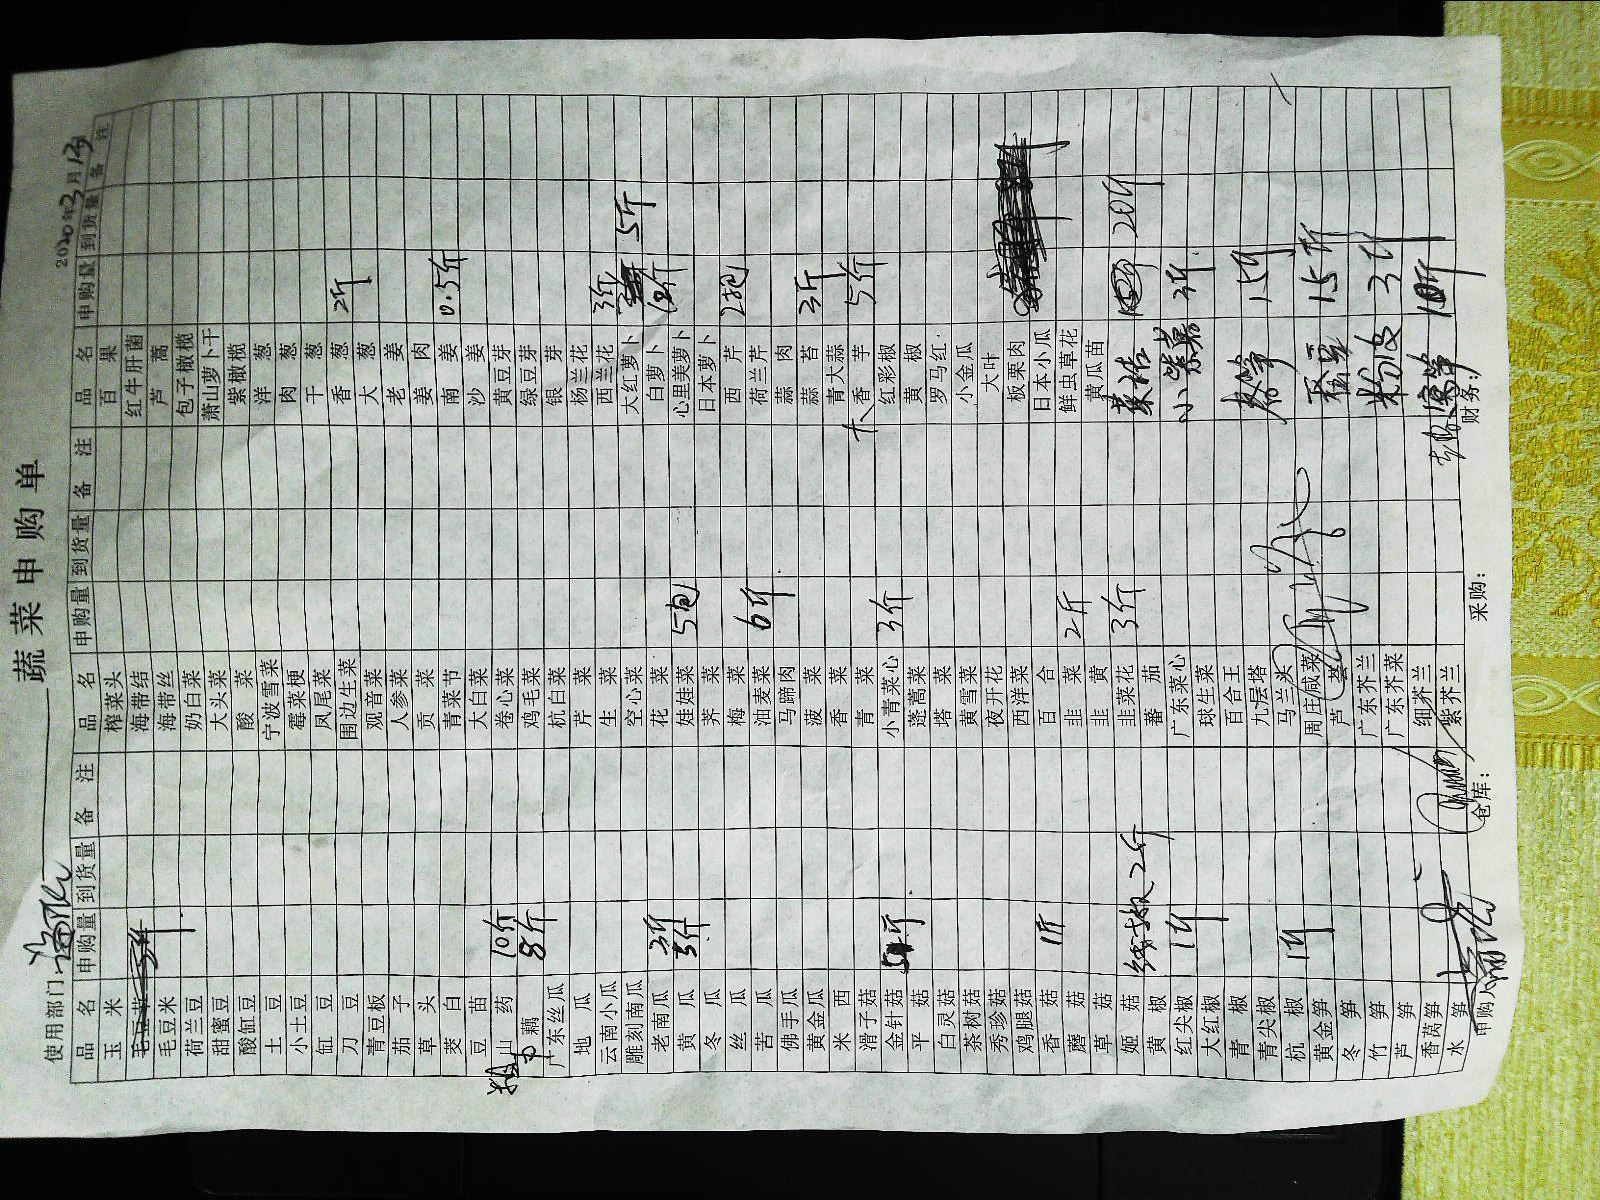 蔬菜申购单
使用部门 2020年3月13
品名 申购量 到货量 备注 品名 申购量 到货量 备注 品名 申购量 到货量 备注
玉米 榨菜头 百果
海带结 红牛肝菌
毛豆米 海带丝 芦蒿
荷兰豆 奶白菜 包子橄榄
甜蜜豆 大头菜 萧山萝卜干
酸缸豆 酸菜 紫橄榄
土豆 宁波雪菜 洋葱
小土豆 霉菜梗 肉葱
缸豆 凤尾菜 干葱
刀豆 围边生菜 香葱 2斤
青豆板 观音菜 大葱
茄子 人参菜 老姜
草头 贡菜 姜肉
茭白 青菜节 南姜 0.5斤
豆苗 大白菜 沙姜
山药 10斤 卷心菜 黄豆芽
藕 8斤 鸡毛菜 绿豆芽
广东丝瓜 杭白菜 银芽
地瓜 芹菜 杨兰花
云南小瓜 生菜 西兰花 3斤
雕刻南瓜 空心菜 大红萝卜 5斤
老南瓜 3斤 花菜 白萝卜
黄瓜 5斤 娃娃菜 5包 心里美萝卜
冬瓜 荠菜 日本萝卜
丝瓜 梅菜 西芹 2把
苦瓜 油麦菜 6斤 荷兰芹
佛手瓜 马蹄肉 蒜肉
黄金瓜 菠菜 蒜苔 3斤
米西 香菜 青大蒜
滑子菇 青菜 大香芋 5斤
金针菇 小青菜心 3斤 红彩椒
平菇 蓬蒿菜 黄椒
白灵菇 塔菜 罗马红
茶树菇 黄雪菜 小金瓜
秀珍菇 夜开花 大叶
鸡腿菇 西洋菜 板栗肉
香菇 1斤 百合 日本小瓜
蘑菇 韭菜 2斤 鲜虫草花
草菇 韭黄 黄瓜苗
姬菇 线椒2斤 韭菜花 3斤 20斤
黄椒 蕃茄
红尖椒 1斤 广东菜心 3斤
大红椒 球生菜
青椒 百合王 15斤
青尖椒 九层塔
杭椒 1斤 马兰头 15斤
黄金笋 周庄咸菜
冬笋 芦荟
竹笋 广东芥兰 粉皮 3斤
芦笋 广东芥菜
香莴笋 细芥兰
水笋 紫芥兰
申购人 仓库： 采购： 财务：